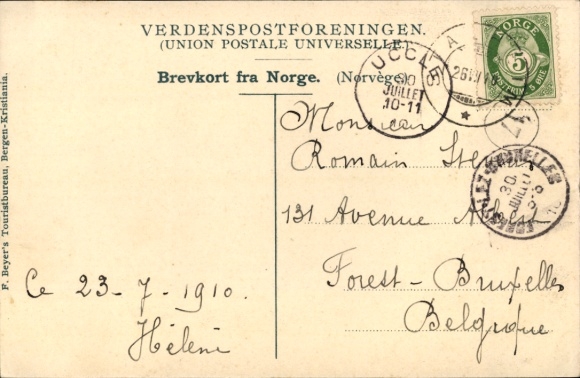 VERDENSPOSTFORENINGEN.
(UNION POSTALE UNIVERSELLE.)
Brevkort fra Norge. (Norvège)
NORGE
5
UCCLE
30
JUILLET
10-11
Monsieur
Romain
131 Avenue Albert
30
JUILLET
Forest-Bruxelles
Belgique
Ce 23-7-1910.
Hélène
F. Beyer's Touristbureau, Bergen-Kristiania.